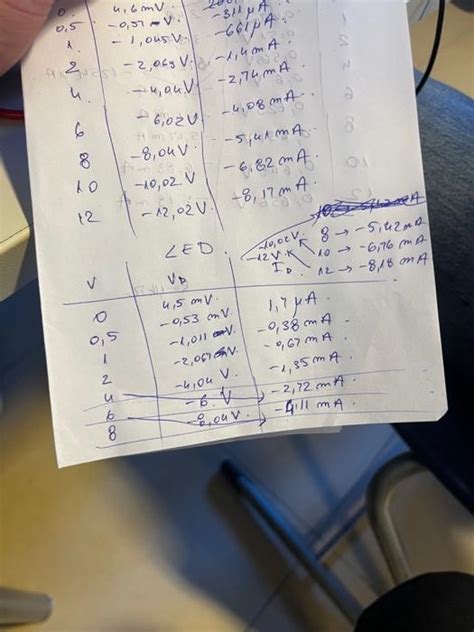 0 4,6mV
0,5 -0,51 V -311 µA
1 -1,045V -661 µA
2 -2,065V -1,4 mA
4 -4,04V -2,74 mA
6 -6,02V -4,08 mA
8 -8,04V -5,41 mA
10 -10,02V -6,82 mA
12 -12,02V -8,17 mA
LED
-10,02V 8 → -5,42mA
-12V 10 → -6,76 mA
12 → -8,18 mA
V VD ID
0 4,5 mV 1,7 µA
0,5 -0,53 mV -0,38 mA
1 -1,011 V -0,67 mA
2 -2,067 V -1,35 mA
4 -4,04 V -2,72 mA
6 -6 V -4,11 mA
8 -8,04V